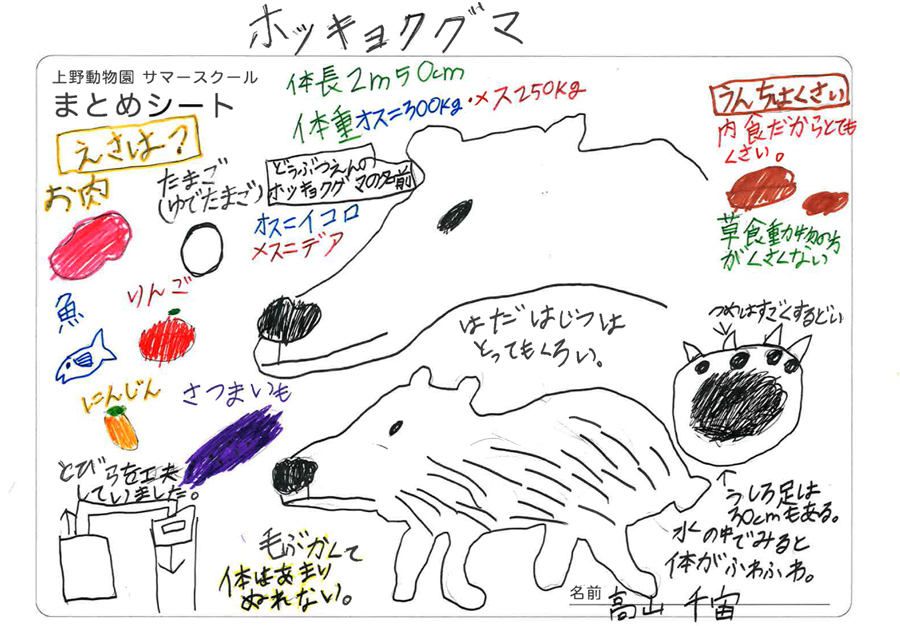 ホッキョクグマ
上野動物園 サマースクール
まとめシート
体長2m50cm
体重オス=300kg・メス250kg
えさは?
お肉
たまご
(ゆでたまご)
魚
りんご
にんじん
さつまいも
どうぶつえんの
ホッキョクグマの名前
オス=イコロ
メス=デア
うんちはくさい
肉食だからとても
くさい。
草食動物の方
がくさくない
はだはじつは
とってもくろい。
つめはすごくするどい
とびらを工夫
していました。
毛ぶかくて
体はあまり
ぬれない。
うしろ足は
30cmもある。
水の中でみると
体がふわふわ。
名前 高山 千宙